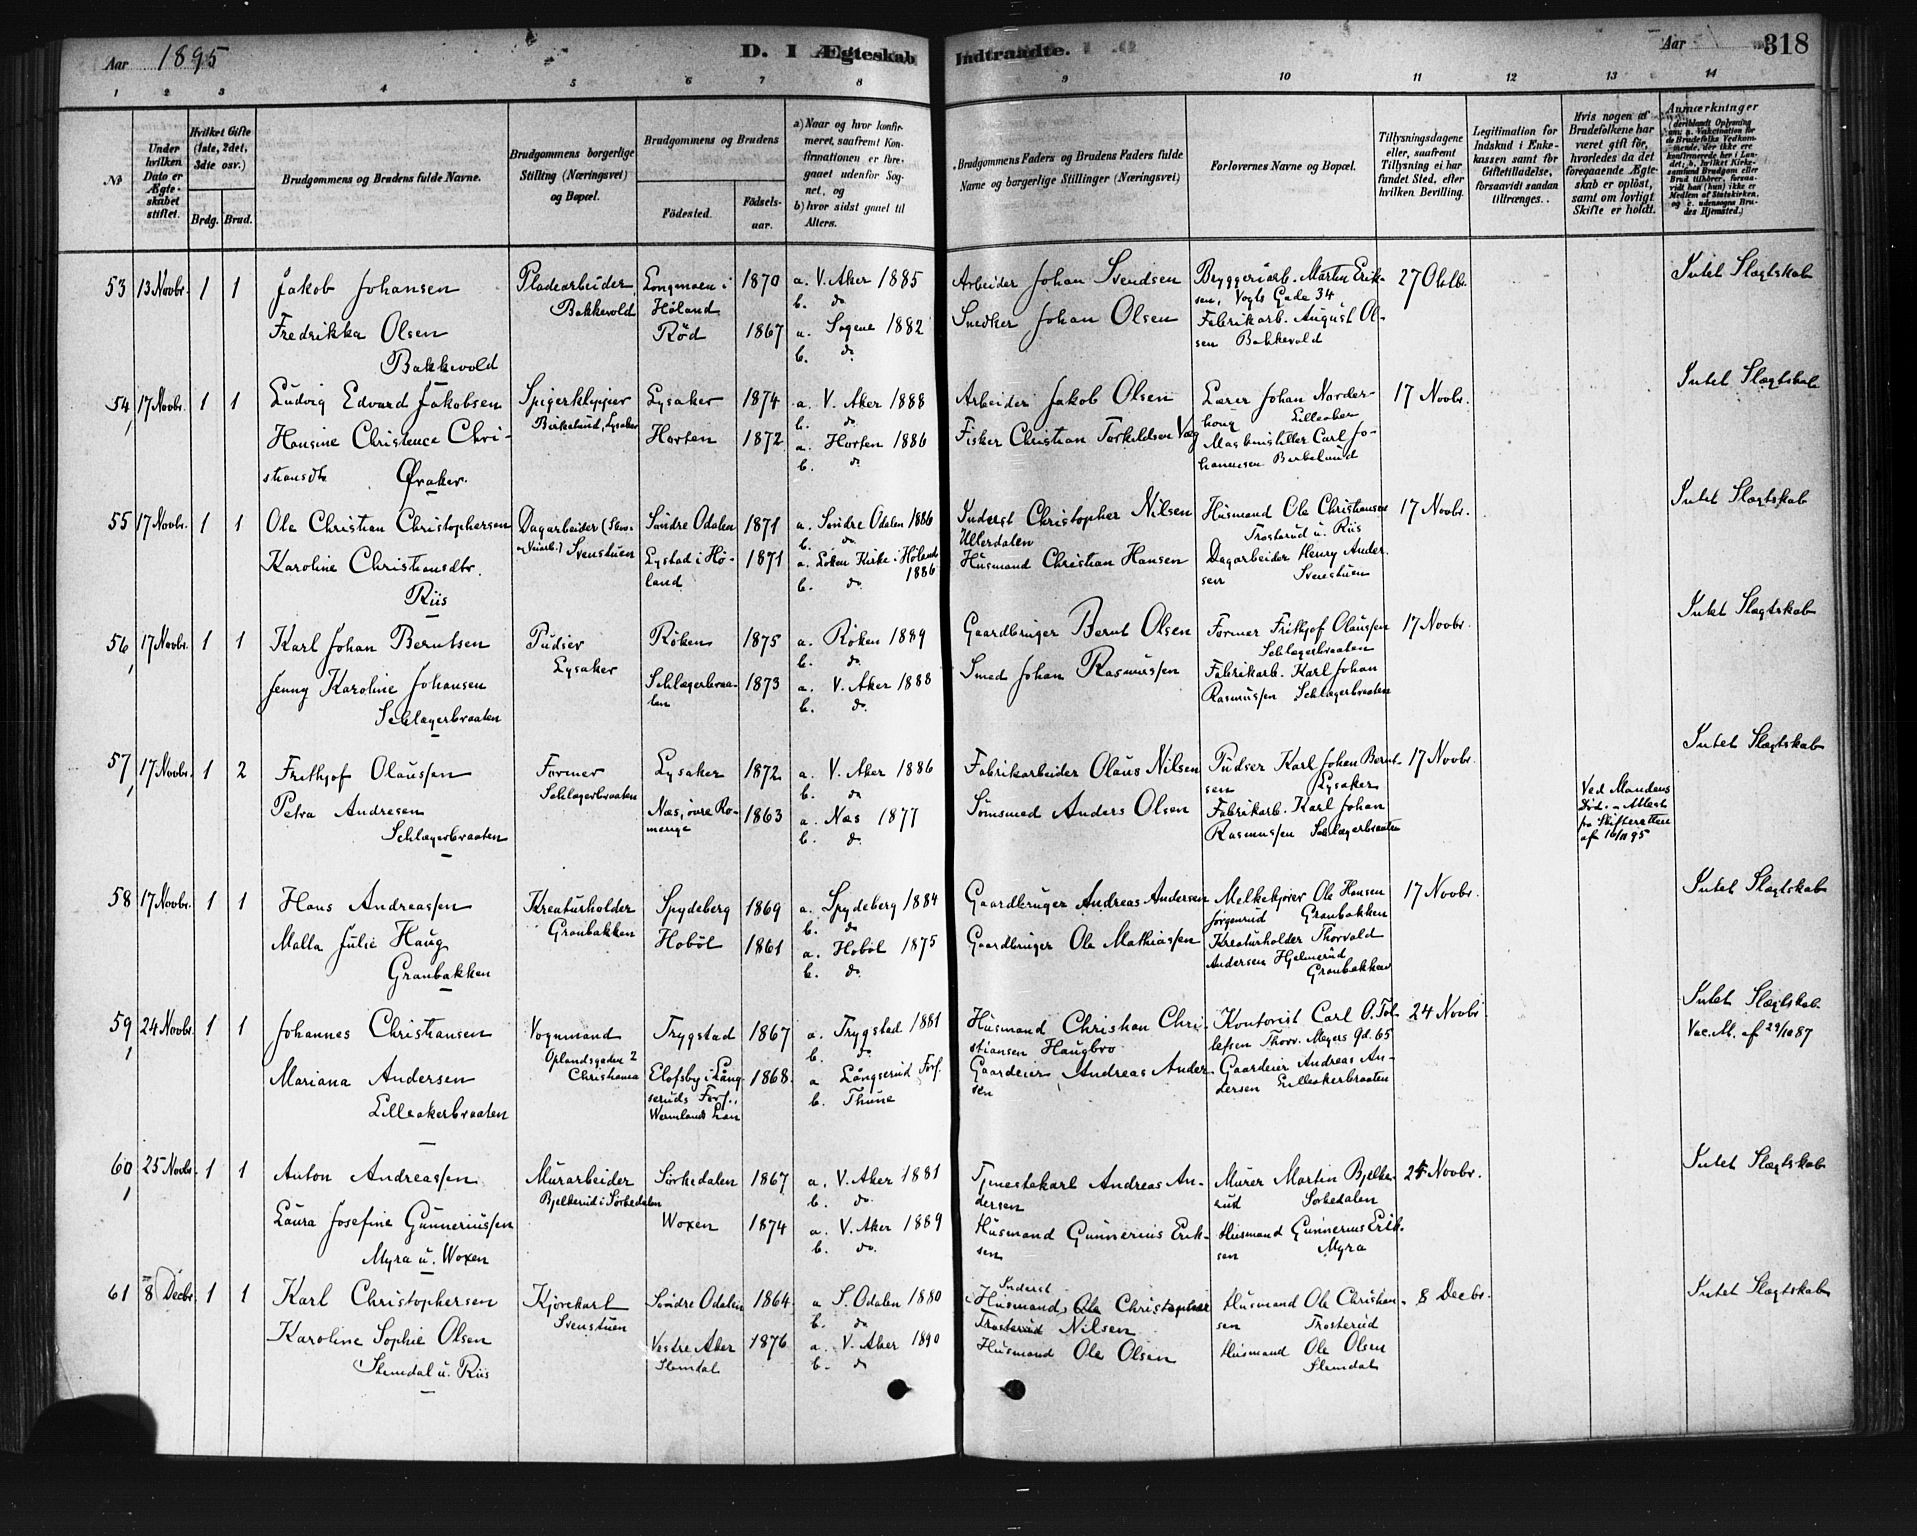 Aar 1895
D. I Ægteskab Indtraadte.
Aar 318
1 2 3 4 5 6 7 8 9 10 11 12 13 14
№
Under hvilken Dato er Ægteskabet stiftet.
Hvilket Gifte (1ste, 2det, 3die osv.)
Brdg. Brud.
Brudgommens og Brudens fulde Navne.
Brudgommens borgerlige Stilling (Næringsvei) og Bopæl.
Brudgommens og Brudens
Fødested.
Fødselsaar.
a) Naar og hvor konfirmeret, saafremt Konfirmationen er foregaaet udenfor Sognet, og
b) hvor sidst gaaet til Alters.
Brudgommens Faders og Brudens Faders fulde Navne og borgerlige Stillinger (Næringsvei)
Forlovernes Navne og Bopæl.
Tillysningsdagene eller, saafremt Tillysning ei har fundet Sted, efter hvilken Bevilling.
Legitimation for Indskud i Enkekassen samt for Giftetilladelse, forsaavidt saadan tiltrænges.
Hvis nogen af Brudefolkene har været gift før, hvorledes da det foregaaende Ægteskab er opløst, samt om lovligt Skifte er holdt.
Anmærkninger
53 13 Novbr. 1 1
Jakob Johansen
Pladearbeider Bakkevold
Longmoen i Høland
1870
a. V. Aker 1885
b. do
Arbeider Johan Svendsen
Bryggeriarb. Martin Eriksen, Vogts Gade 34
27 Oktbr.
Intet Slægtskab
Fredrikka Olsen
Bakkevold
Röd
1867
a. Sogne 1882
b. do
Snedker Johan Olsen
Fabrikarb. August Olsen Bakkevold
54, 17 Novbr. 1 1
Ludvig Edvard Jakobsen
Spigerklipper
Birkelund, Lysaker
Lysaker
1874
a. V. Aker 1888
b. do
Arbeider Jakob Olsen
Lærer Johan Norderhoug Lilleaker
17 Novbr.
Intet Slægtskab
Hansine Christence Christiansdtr
Øraker
Horten
1872
a. Horten 1886
b. do
Fisker Christian Torkildsen
Maskinstiller Carl Johannesen Birkelund
55 17 Novbr. 1 1
Ole Christian Christophersen
Dagarbeider
Svenstuen
Söndre Odalen
1871
a. Söndre Odalen 1886
b. do
Inderst Christopher Nilsen
Ullerdalen
Husmand Ole Christiansen
Trosterud u. Riis
17 Novbr.
Intet Slægtskab
Karoline Christiansdtr.
Riis
Lystad i Høland
1871
a. Löken Kirke i Høland 1886
b. do
Husmand Christian Hansen
Dagarbeider Henry Andersen Svenstuen
56, 17 Novbr. 1 1
Karl Johan Berntsen
Pudser
Lysaker
Röken
1875
a. Röken 1889
b. do
Gaardbruger Bernt Olsen
Former Frithjof Olaussen
Schlagerbraaten
17 Novbr.
Intet Slægtskab
Jenny Karoline Johansen
Schlagerbraaten
Schlagerbraaten
1873
a. V. Aker 1888
b. do
Smed Johan Rasmussen
Fabrikarb. Karl Johan
Rasmussen Schlagerbraaten
57, 17 Novbr. 1 2
Frithjof Olaussen
Former
Schlagerbraaten
Lysaker
1872
a. V. Aker 1886
b. do
Fabrikarbeider Olaus Nilsen
Pudser Karl Johan Berntsen Lysaker
17 Novbr.
Ved Mandens Död. - Attest fra Skifteretten af 16/11 95
Intet Slægtskab
Petra Andresen
Schlagerbraaten
Næs, övre Romerige
1863
a. Næs 1877
b. do
Sömsmed Anders Olsen
Fabrikarb. Karl Johan
Rasmussen Schlagerbraaten
58 17 Novbr. 1 1
Hans Andreassen
Kreaturholder
Granbakken
Spydeberg
1869
a. Spydeberg 1884
b. do
Gaardbruger Andreas Andersen
Melkekjörer Ole Hansen
Jörgenrud Granbakken
17 Novbr.
Intet Slægtskab
Malla Julie Haug
Granbakken
Hoböl
1861
a. Hoböl 1875
b. do
Gaardbruger Ole Mathiassen
Kreaturholder Thorvald
Andersen Hjelmerud
Granbakken
59, 24 Novbr. 1 1
Johannes Christiansen
Vognmand
Oplandsgaden 2
Christiania
Trygstad
1867
a. Trygstad 1881
b. do
Husmand Christian Christiansen Haugbro
Kontorist Carl O. Tollefsen Thorv. Meyers Gd. 65
24 Novbr
Intet Slægtskab
Vac. At. af 29/10 87
Mariana Andersen
Lilleakerbraaten
Elofsby i Långseruds Fors., Wermlands Län
1868
a Långserud Fors.
b. Thune
Gaardeier Andreas Andersen
Gaardeier Andreas Andersen Lilleakerbraaten
60, 25 Novbr. 1 1
Anton Andreassen
Murarbeider
Bjelkerud i Sörkedalen
Sörkedalen
1867
a. V. Aker 1881
b. do
Tjenestekarl Andreas Andersen
Murer Martin Bjelkerud Sorkedalen
24 Novbr.
Intet Slægtskab
Laura Josefine Gunneriussen
Myra u. Woxen
Woxen
1874
a. V. Aker 1889
b. do.
Husmand Gunnerius Eriksen
Husmand Gunnerius Eriksen Myra
61 8 Decbr 1 1
Karl Christophersen
Kjörekarl
Svenstuen
Söndre Odalen
1864
a S. Odalen 1880
b. do
Inderst
Husmand Ole Christopher
Trosterud Nilsen
Husmand Ole Christiansen Trosterud
8 Decbr.
Intet Slægtskab
Karoline Sophie Olsen
Slemdal u. Riis
Vestre Aker
Slemdal
1876
a. V. Aker 1890
b. do
Husmand Ole Olsen
Husmand Ole Olsen
Slemdal